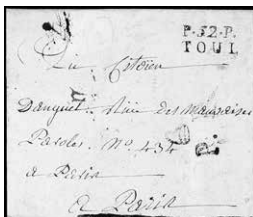 P.52.P.
TOUL
Au Citoïen
Danguet Rüe des Mauvaises
Paroles. N.º 434
a Paris
a Paris